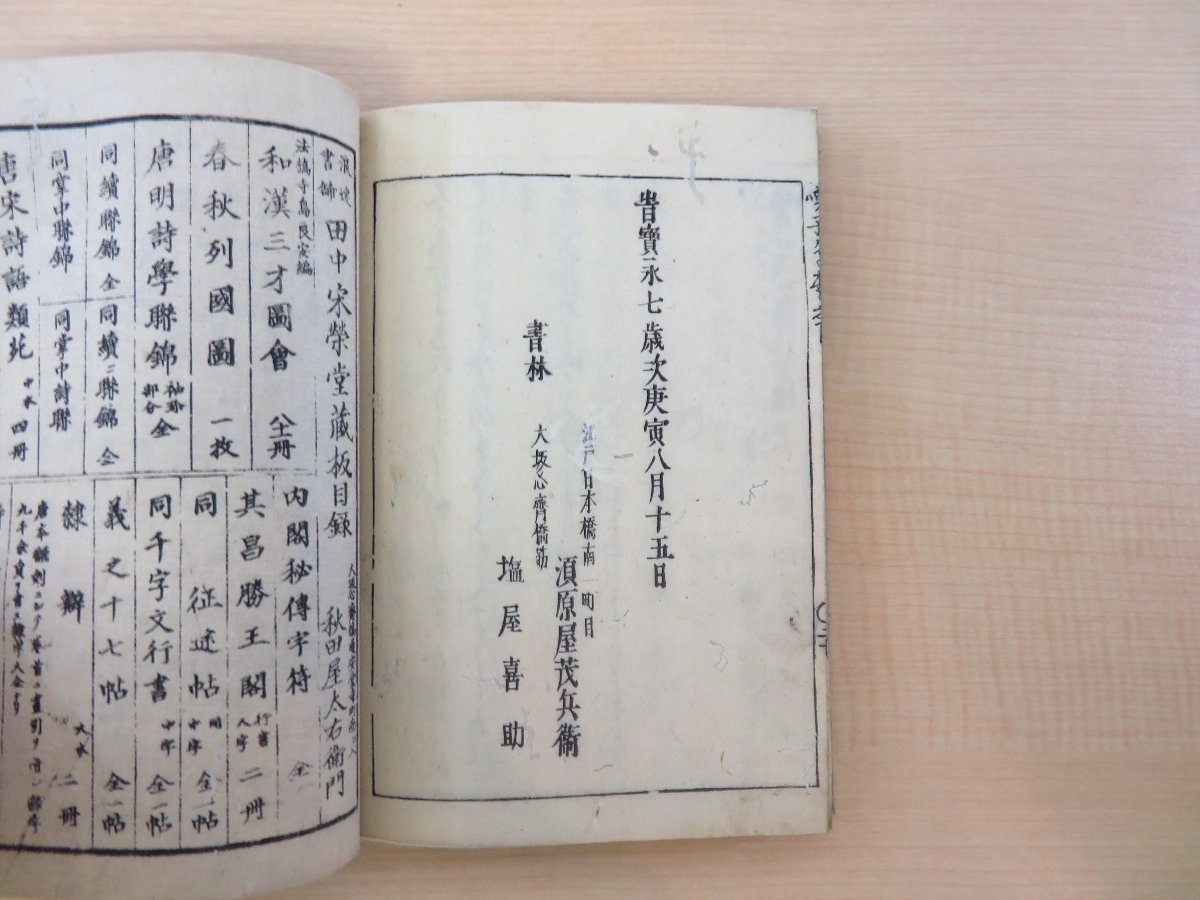 旹寶永七歳次庚寅八月十五日
江戸日本橋南一町目
須原屋茂兵衞
書林
大坂心齊橋筋
塩屋喜助
浪華書鋪
田中宋榮堂蔵板目録
秋田屋太右衛門
法橋寺島良安編
和漢三才圖會 八十一冊
春秋列國圖 一枚
唐明詩學聯錦 袖珍部分 全
同續聯錦 全
同續三聯錦 全
同掌中聯錦
同掌中詩聯
唐宋詩語類苑 中本 四冊
内閣秘傳字府 全
其昌勝王閣 行書大字 二冊
同 征途帖 同中字 全一帖
同千字文行書 中字 全一帖
義之十七帖 全一帖
隷辨 大本 二冊